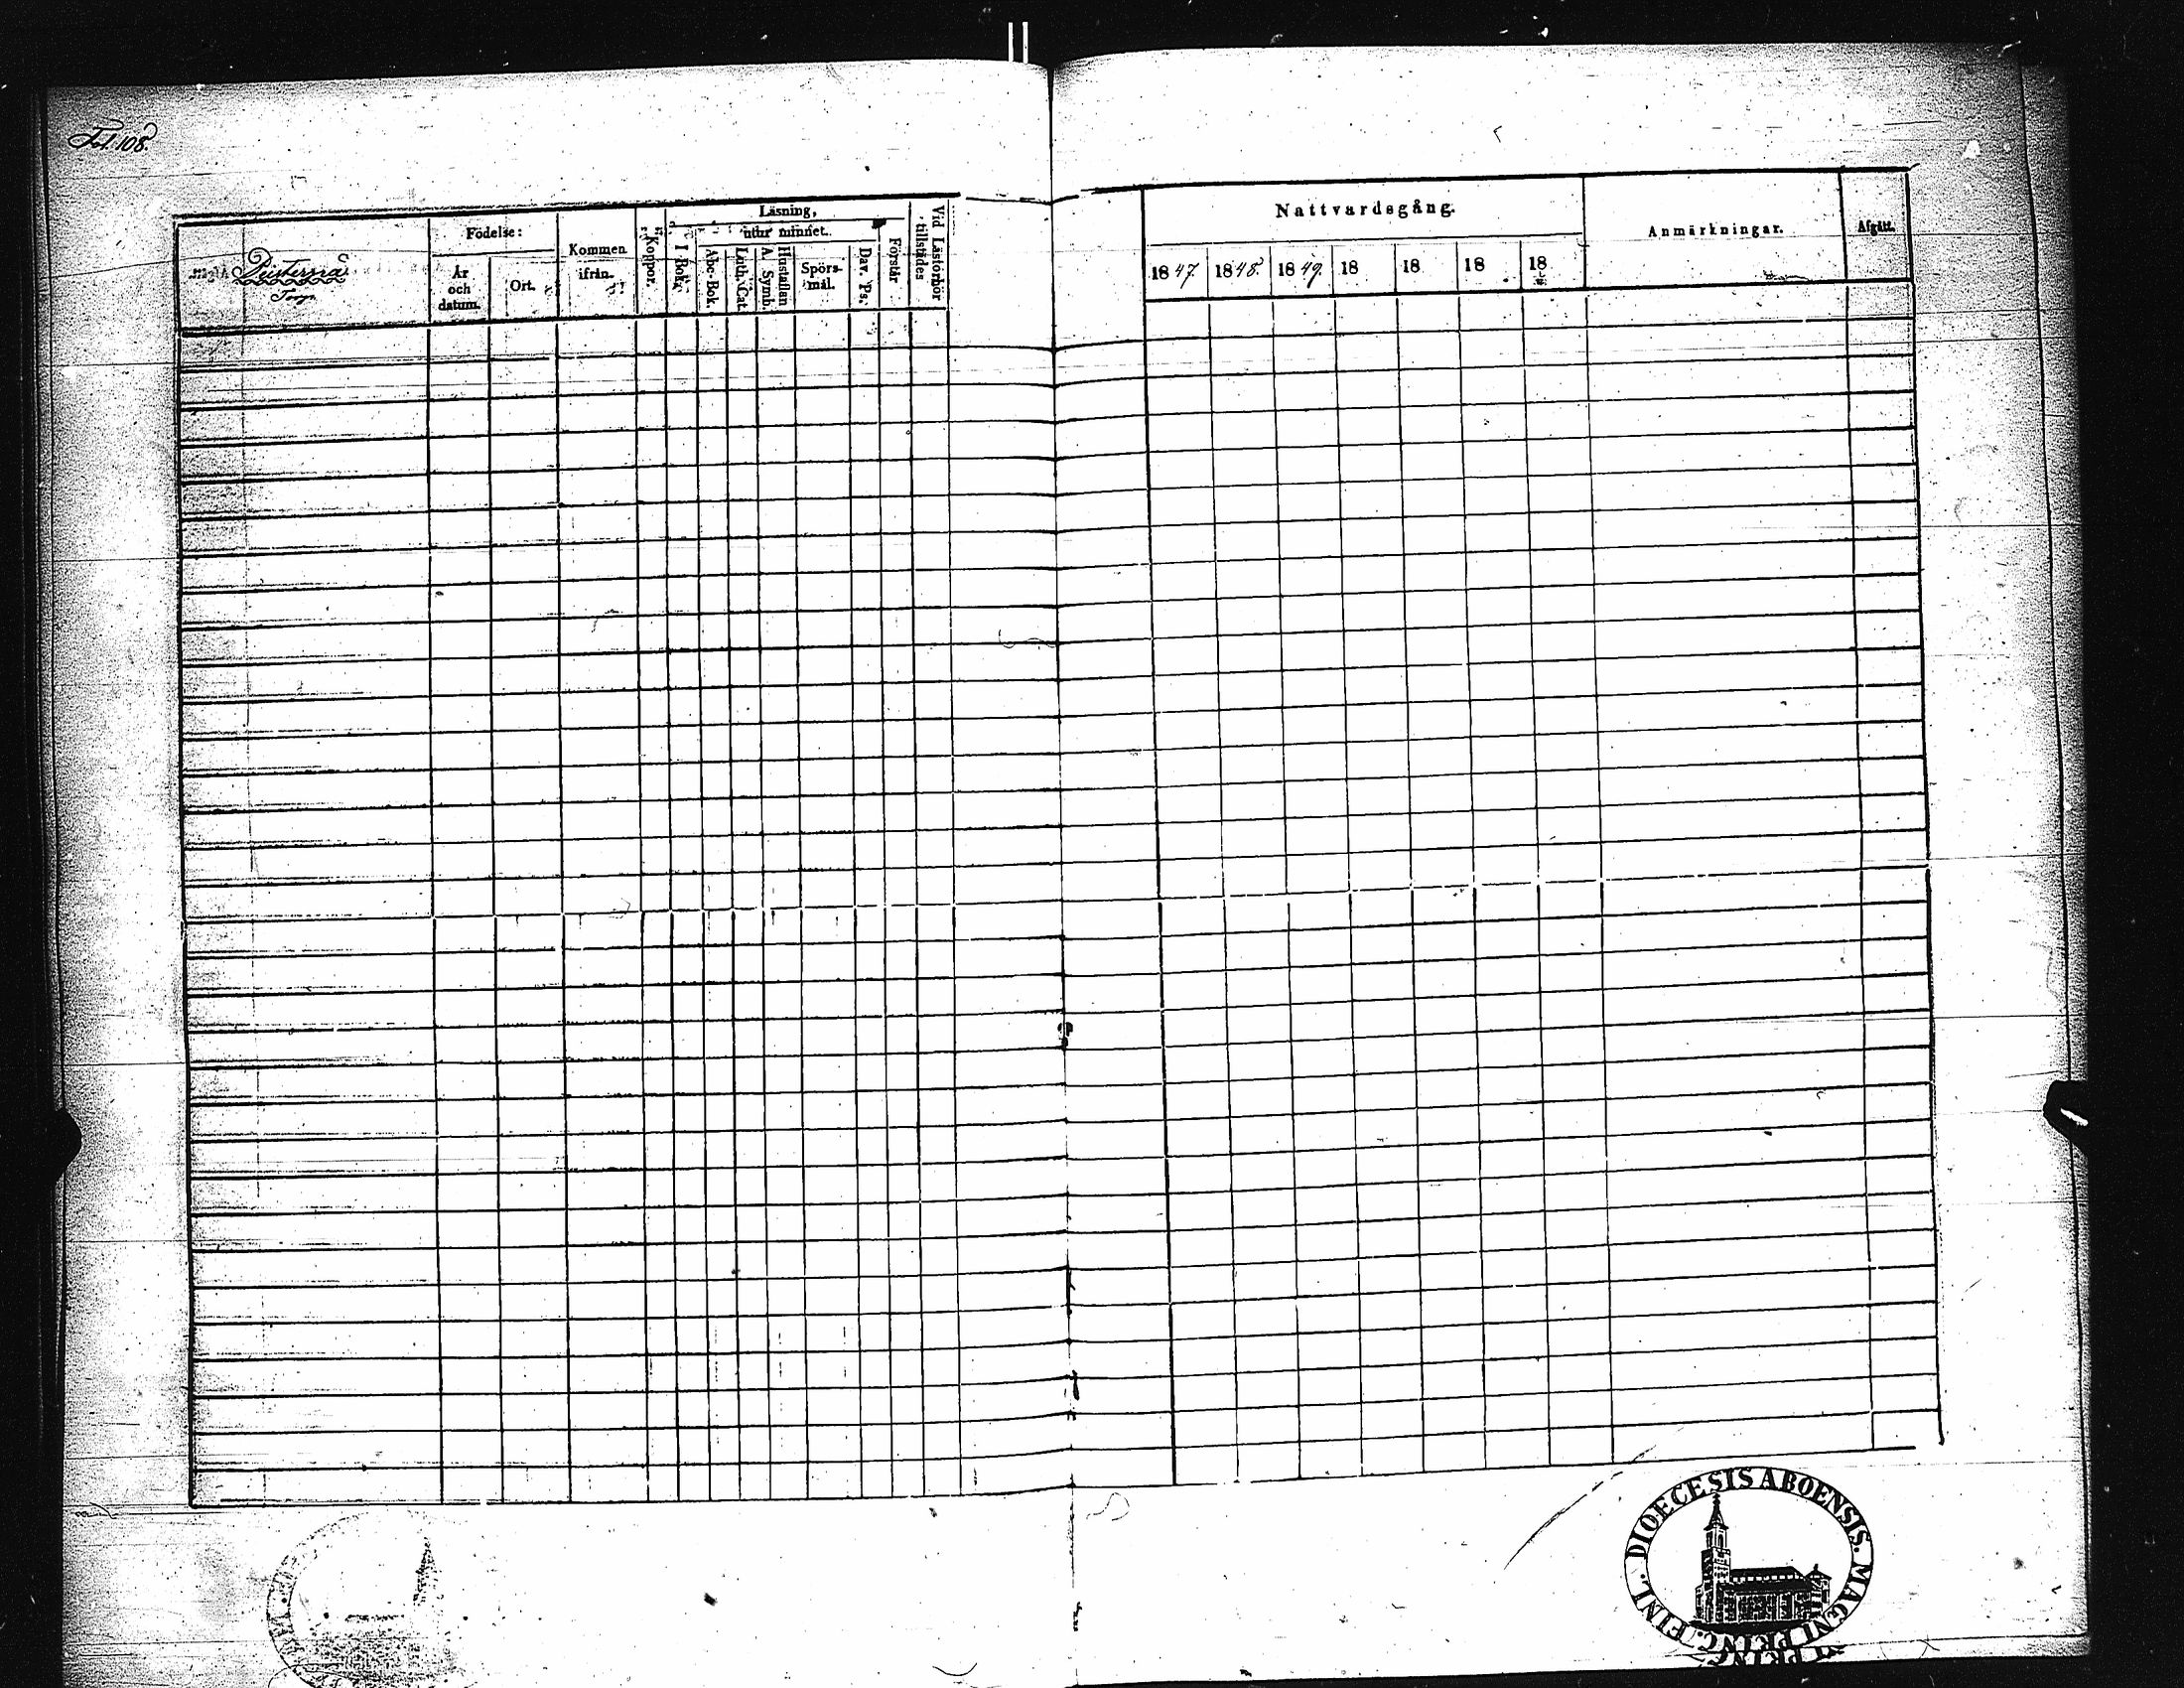 Fol. 108.
Födelse:
År
och
datum.
Ort.
Kommen
ifrån.
Koppor.
Läsning,
utur minnet.
I Bok.
Abc-Bok.
Luth. Cat.
Hustaflan
A. Symb.
Spörs-
mål.
Dav. Ps.
Förstår
Vid Läsförhör
tillstädes
Nattvardsgång.
1847.
1848.
1849.
18
18
18
18
Anmärkningar.
Afgått.
DIOECESIS ABOENSIS. MAGNI PRINC. FINL.